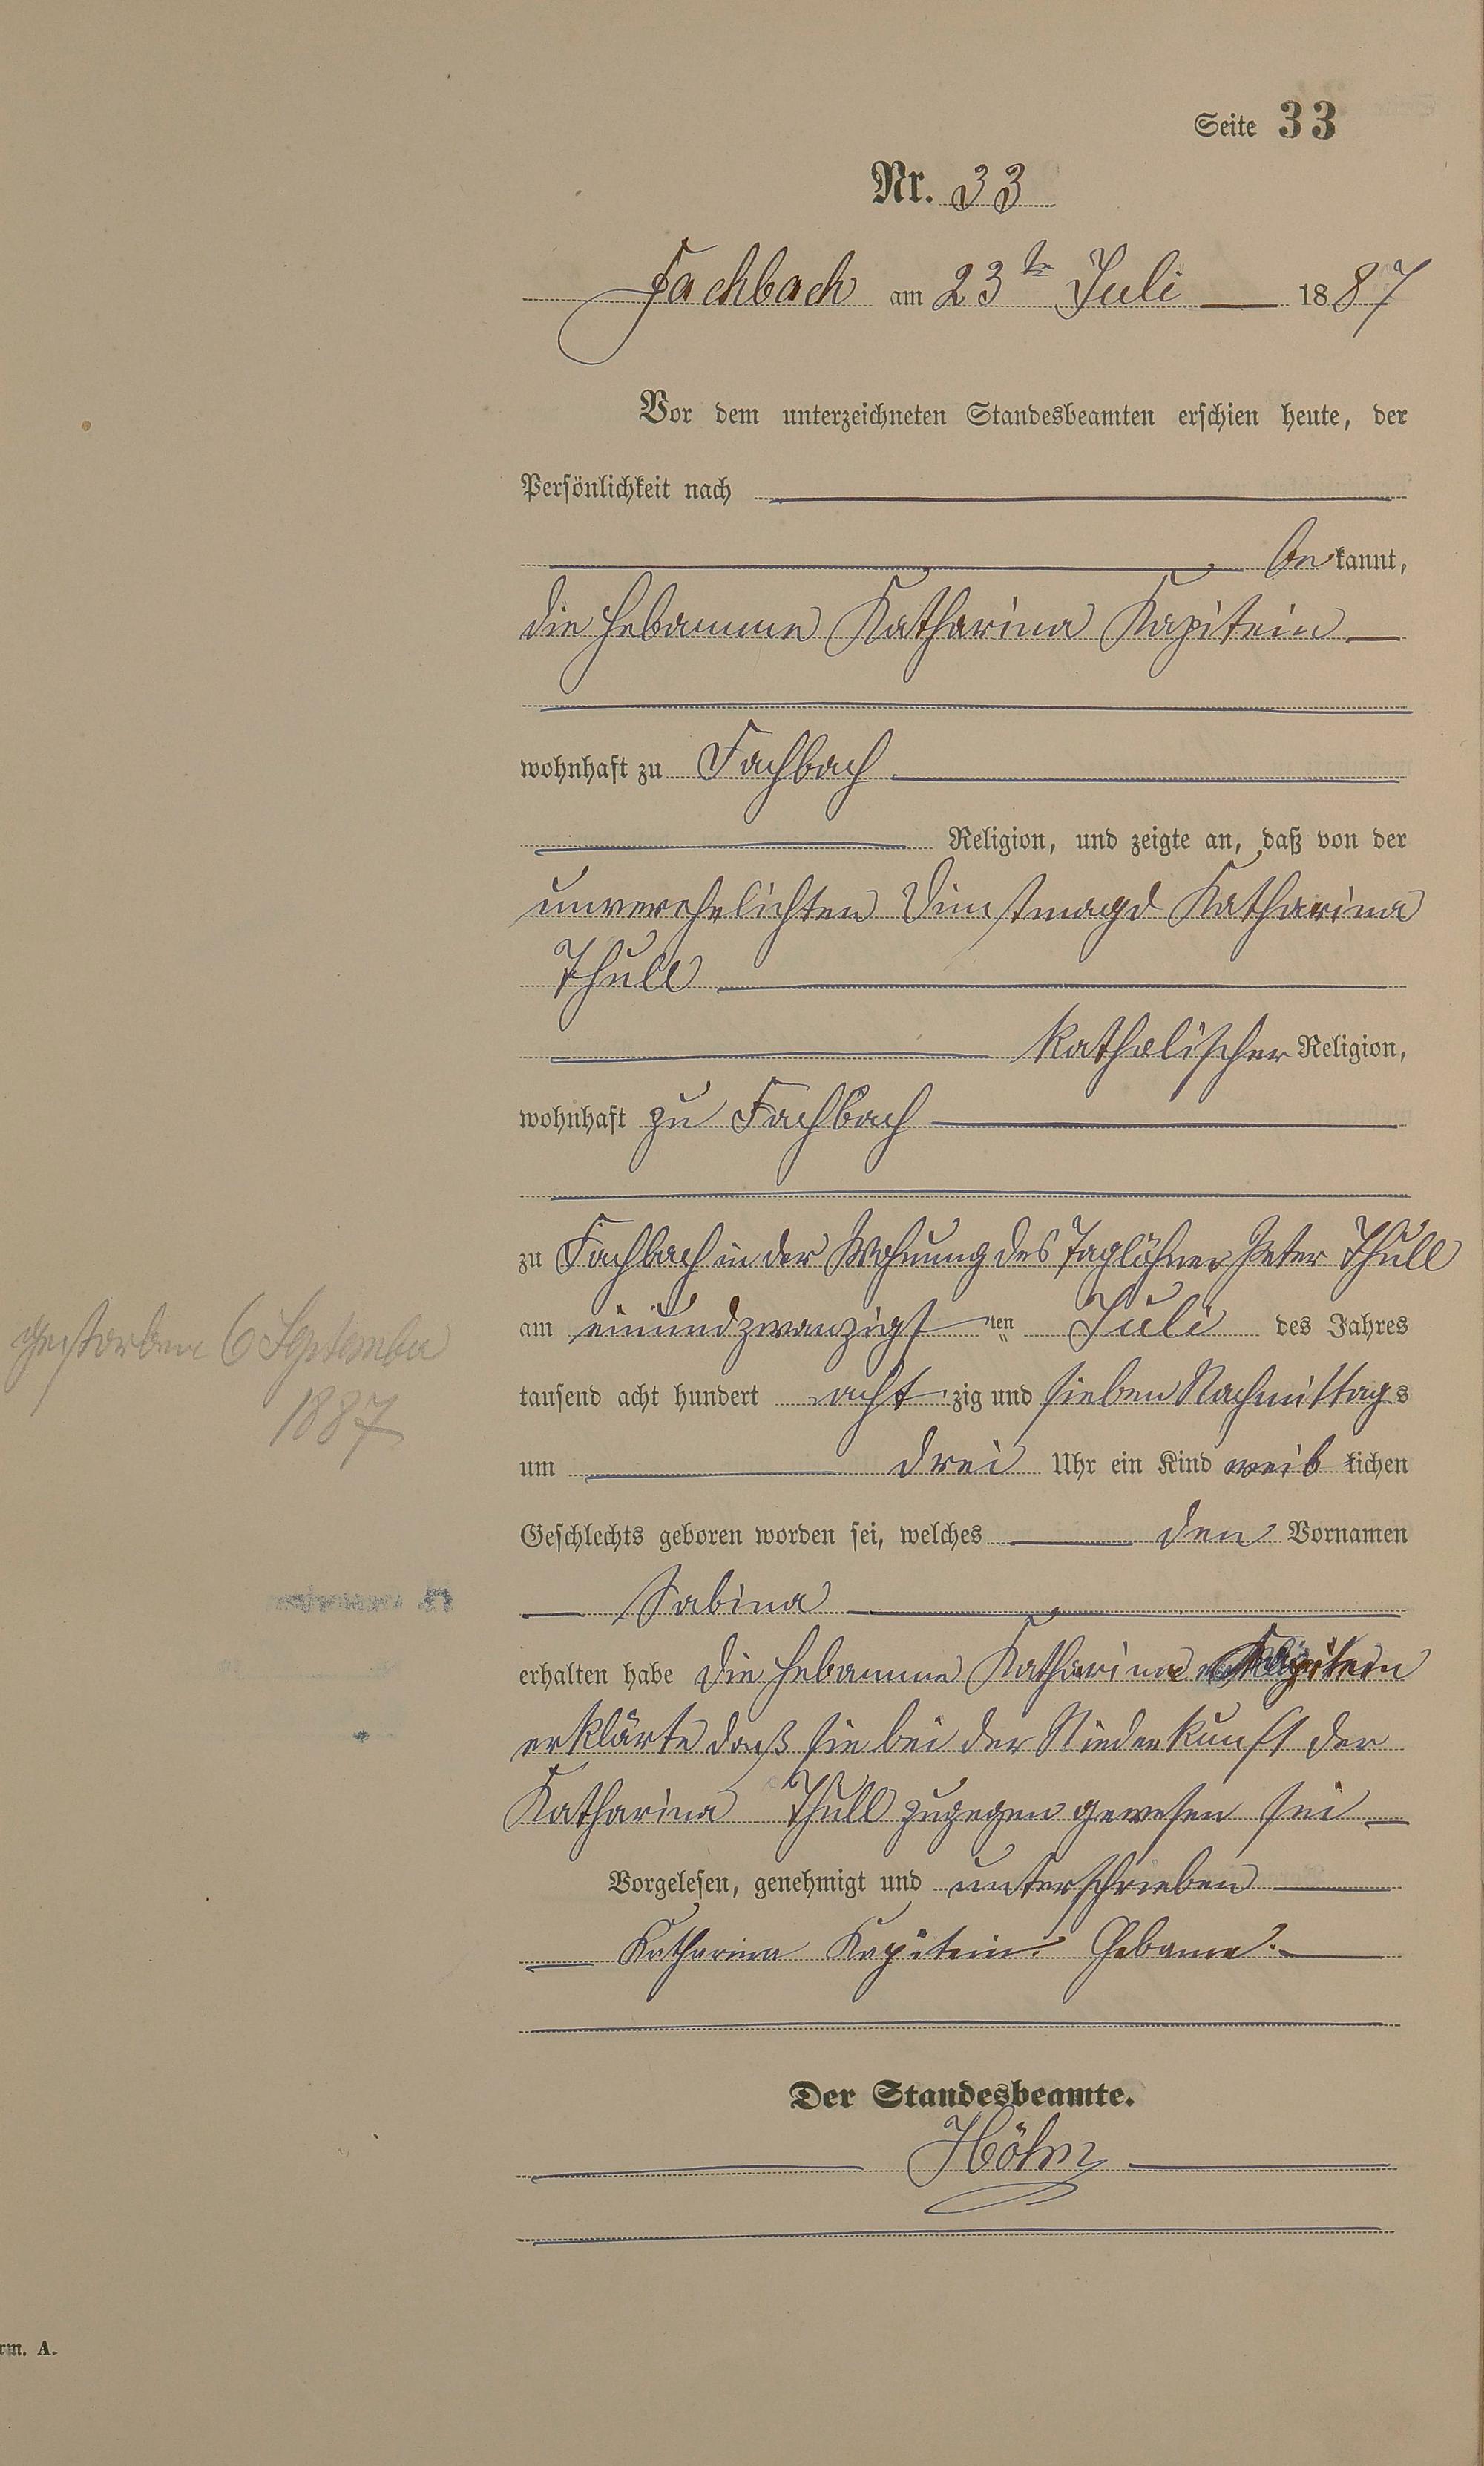 Seite 33
Nr. 33
Fachbach am 23ten Juli 1887
Vor dem unterzeichneten Standesbeamten erschien heute, der
Persönlichkeit nach
bekannt,
die Hebamme Katharina Kapitein
wohnhaft zu Fachbach
Religion, und zeigte an, daß von der
unverehelichten Dienstmagd Katharina
Thull
katholischer Religion,
wohnhaft zu Fachbach
zu Fachbach in der Wohnung des Taglöhner Peter Thull
am einundzwanzigsten Juli des Jahres
tausend acht hundert achtzig und sieben Nachmittags
um drei Uhr ein Kind weiblichen
Geschlechts geboren worden sei, welches den Vornamen
Sabina
erhalten habe die Hebamme Katharina Kapitein
erklärte daß sie bei der Niederkunft der
Katharina Thull zugegen gewesen sei
Vorgelesen, genehmigt und unterschrieben
Katharina Kapitein. Hebame.
Der Standesbeamte.
gestorben 6 September
1887
rm. A.